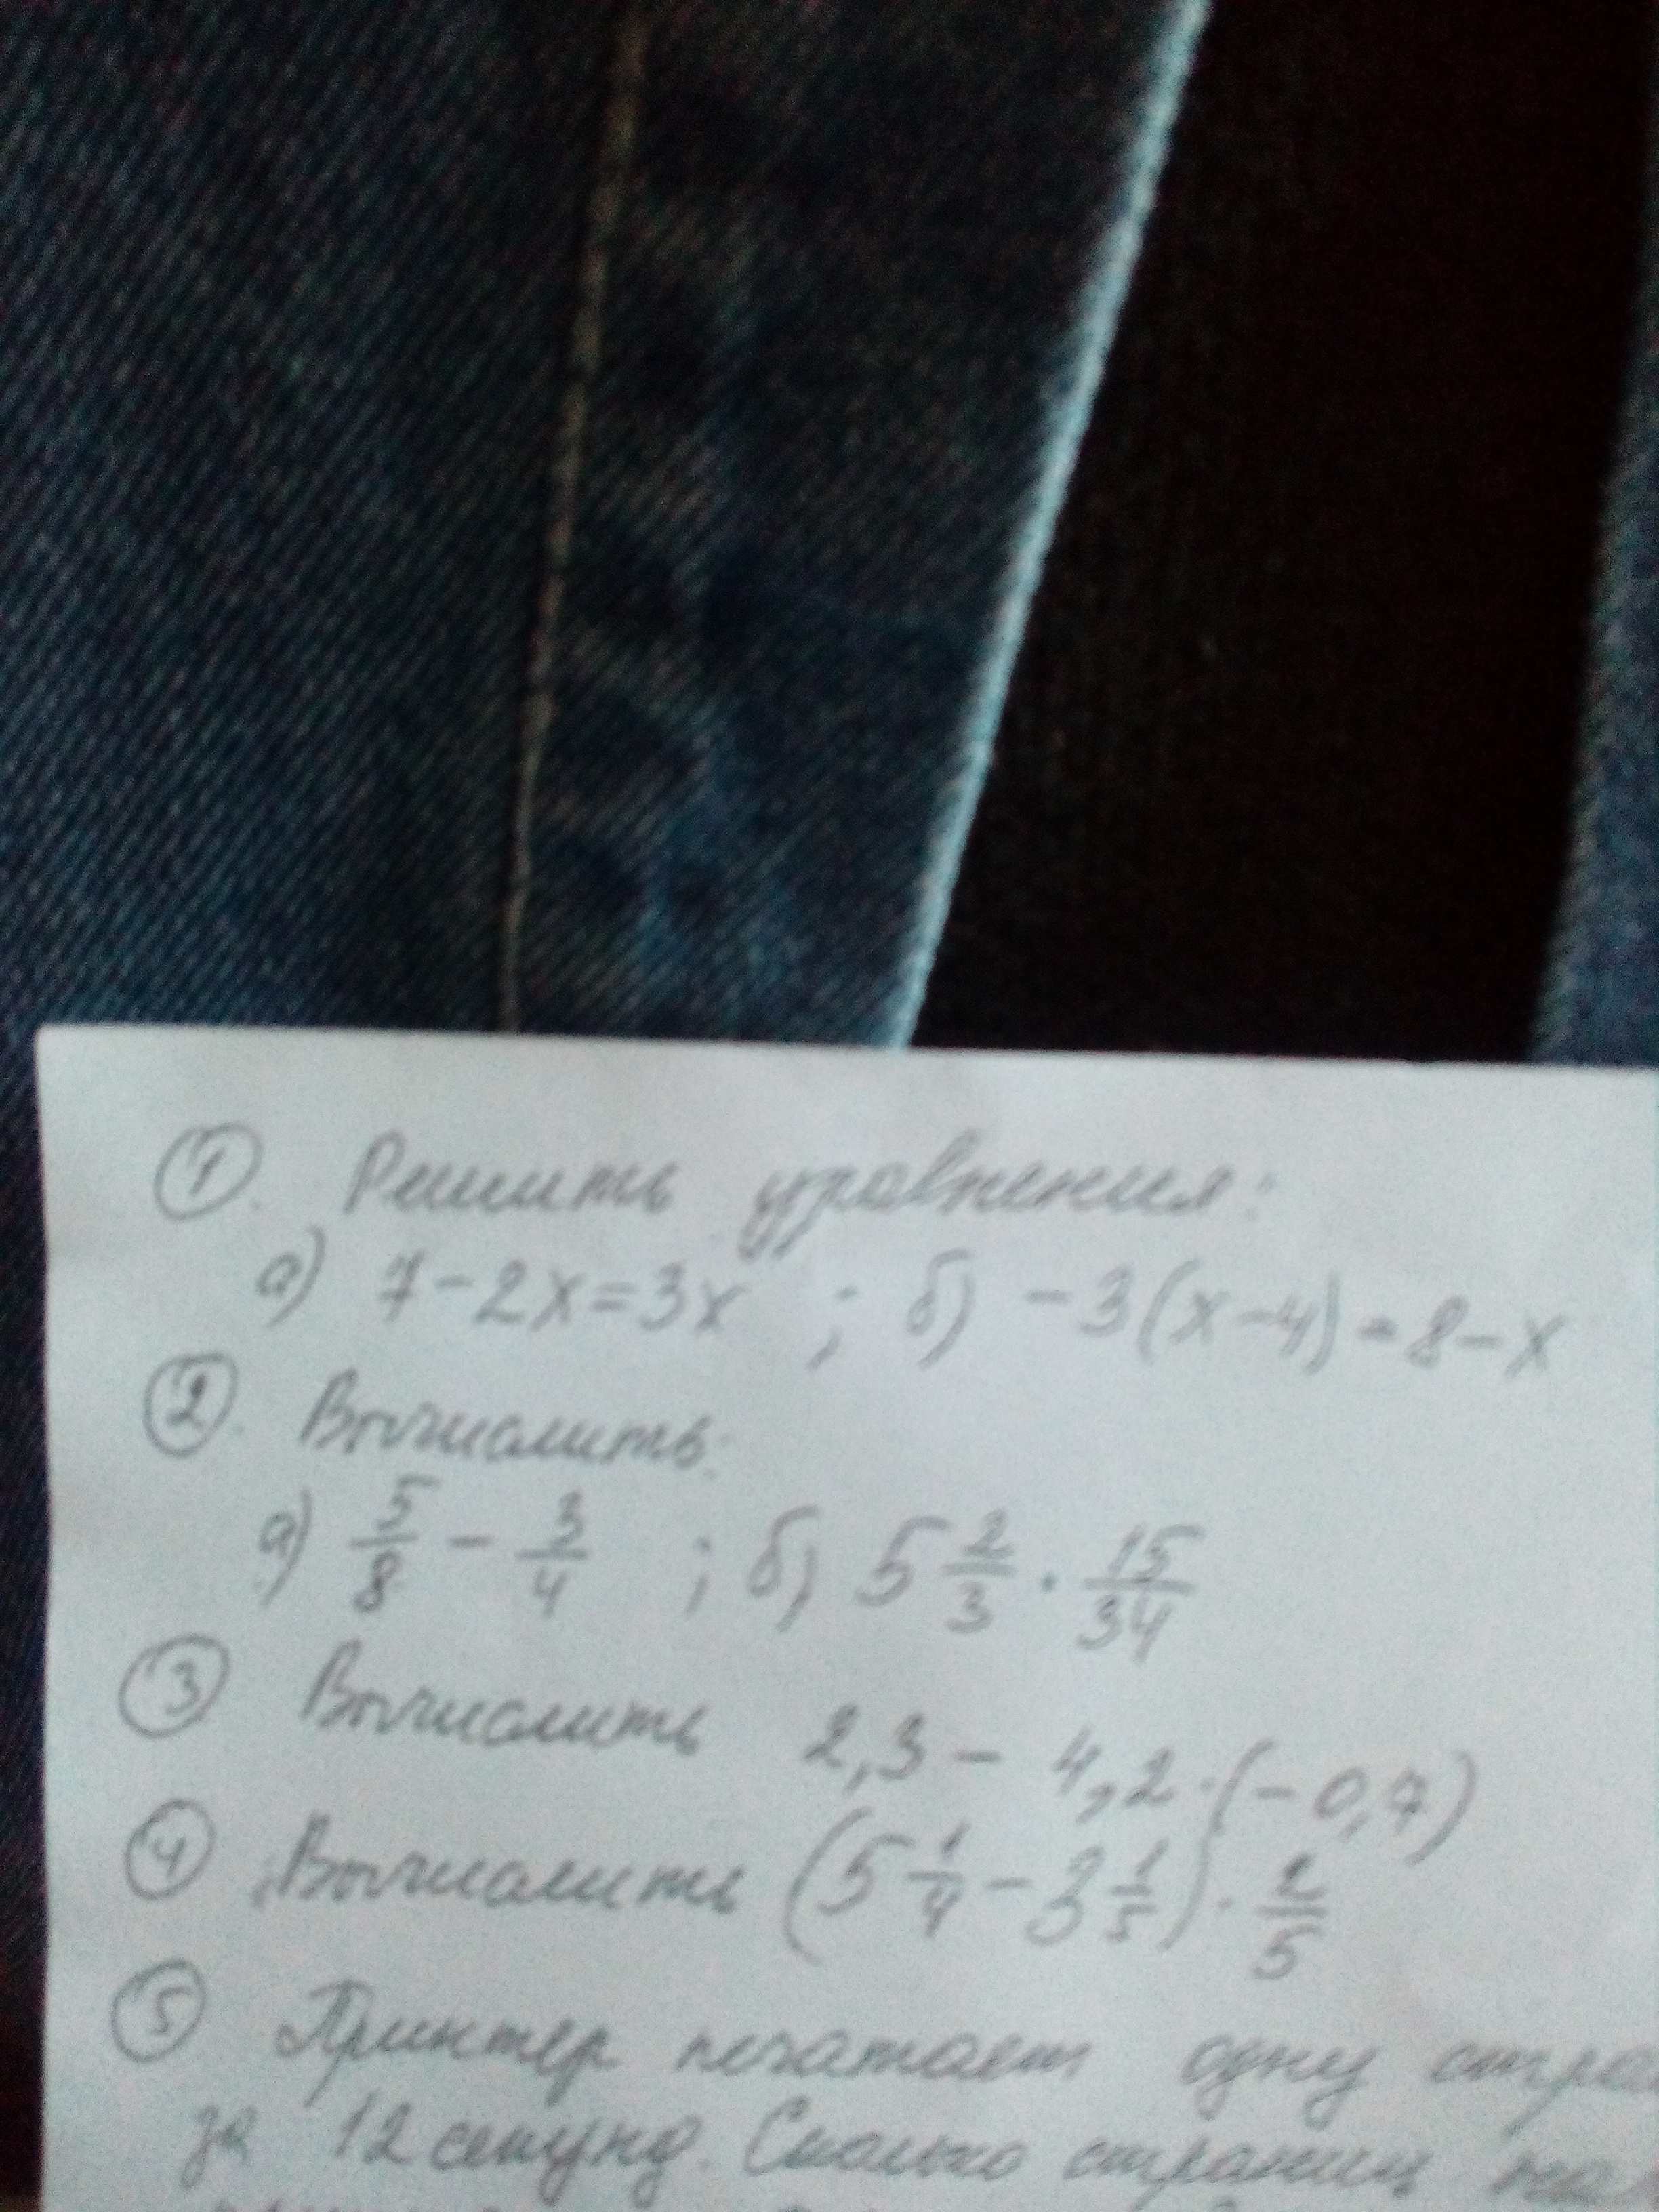 ① Решить уравнения:
а) 7-2x=3x ; б) -3(x-4)=8-x
② Вычислить:
а) 5/8 - 3/4 ; б) 5 2/3 · 15/34
③ Вычислить 2,3 - 4,2·(-0,7)
④ Вычислить (5 1/4 - 3 1/5) · 2/5
⑤ Принтер печатает одну стра
за 12 секунд. Сколько страниц